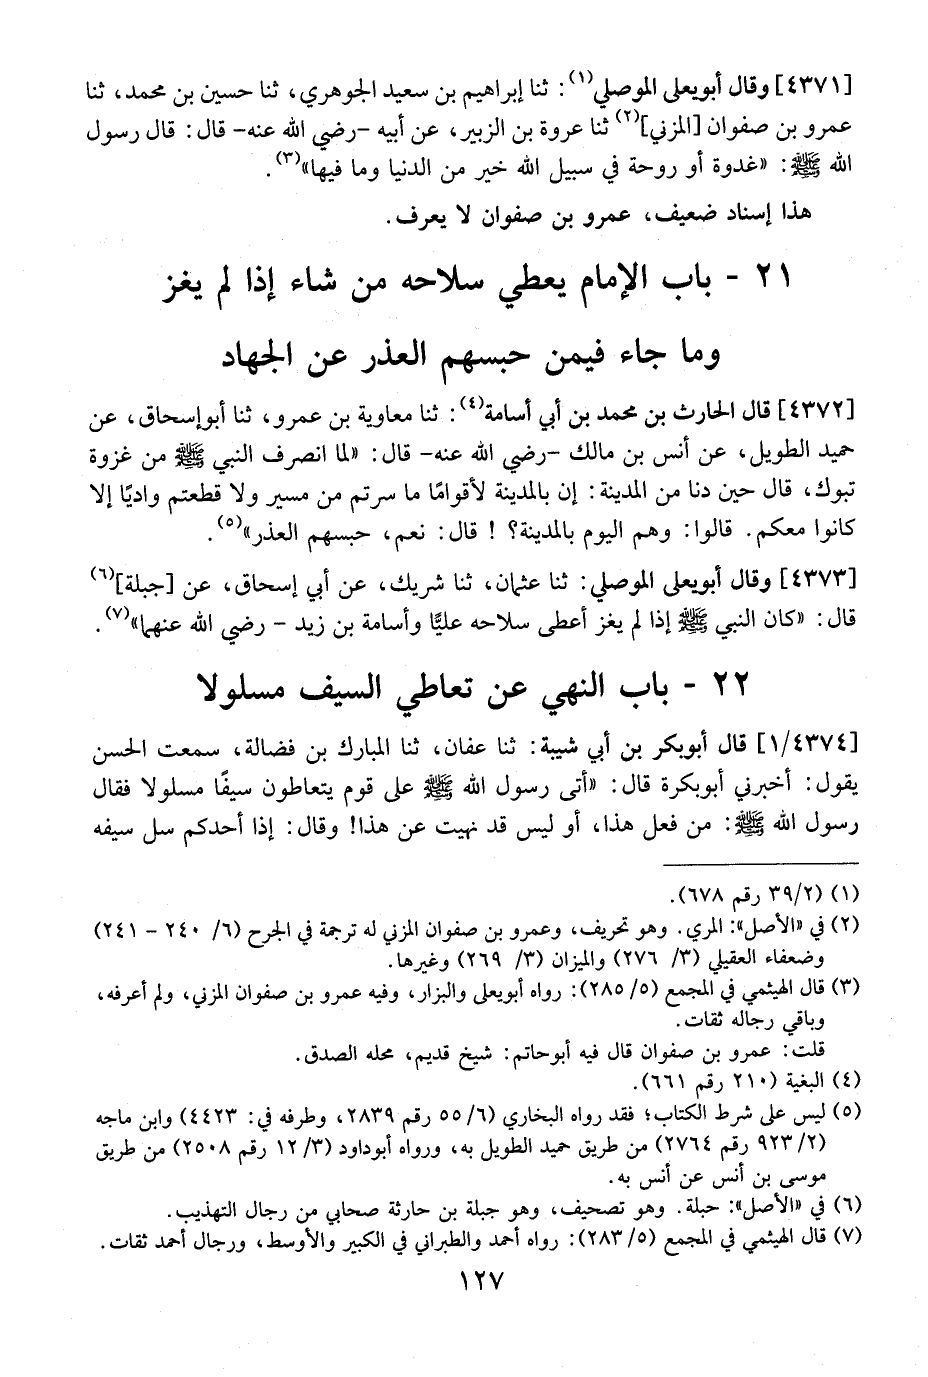 [٤٣٧١] وقال أبويعلى الموصلي(١): ثنا إبراهيم بن سعيد الجوهري، ثنا حسين بن محمد، ثنا
عمرو بن صفوان [المزني](٢) ثنا عروة بن الزبير، عن أبيه -رضي الله عنه- قال: قال رسول
الله ﷺ: «غدوة أو روحة في سبيل الله خير من الدنيا وما فيها»(٣).
هذا إسناد ضعيف، عمرو بن صفوان لا يعرف.
٢١ - باب الإمام يعطي سلاحه من شاء إذا لم يغز
وما جاء فيمن حبسهم العذر عن الجهاد
[٤٣٧٢] قال الحارث بن محمد بن أبي أسامة(٤): ثنا معاوية بن عمرو، ثنا أبوإسحاق، عن
حميد الطويل، عن أنس بن مالك -رضي الله عنه- قال: «لما انصرف النبي ﷺ من غزوة
تبوك، قال حين دنا من المدينة: إن بالمدينة لأقوامًا ما سرتم من مسير ولا قطعتم واديًا إلا
كانوا معكم. قالوا: وهم اليوم بالمدينة؟ ! قال: نعم، حبسهم العذر»(٥).
[٤٣٧٣] وقال أبويعلى الموصلي: ثنا عثمان، ثنا شريك، عن أبي إسحاق، عن [جبلة](٦)
قال: «كان النبي ﷺ إذا لم يغز أعطى سلاحه عليًّا وأسامة بن زيد - رضي الله عنهما»(٧).
٢٢ - باب النهي عن تعاطي السيف مسلولا
[١/٤٣٧٤] قال أبوبكر بن أبي شيبة: ثنا عفان، ثنا المبارك بن فضالة، سمعت الحسن
يقول: أخبرني أبوبكرة قال: «أتى رسول الله ﷺ على قوم يتعاطون سيفًا مسلولا فقال
رسول الله ﷺ: من فعل هذا، أو ليس قد نهيت عن هذا! وقال: إذا أحدكم سل سيفه
(١) (٣٩/٢ رقم ٦٧٨).
(٢) في «الأصل»: المري. وهو تحريف، وعمرو بن صفوان المزني له ترجمة في الجرح (٦/ ٢٤٠ - ٢٤١)
وضعفاء العقيلي (٣/ ٢٧٦) والميزان (٣/ ٢٦٩) وغيرها.
(٣) قال الهيثمي في المجمع (٥/ ٢٨٥): رواه أبويعلى والبزار، وفيه عمرو بن صفوان المزني، ولم أعرفه،
وباقي رجاله ثقات.
قلت: عمرو بن صفوان قال فيه أبوحاتم: شيخ قديم، محله الصدق.
(٤) البغية (٢١٠ رقم ٦٦١).
(٥) ليس على شرط الكتاب؛ فقد رواه البخاري (٦/ ٥٥ رقم ٢٨٣٩، وطرفه في: ٤٤٢٣) وابن ماجه
(٢/ ٩٢٣ رقم ٢٧٦٤) من طريق حميد الطويل به، ورواه أبوداود (٣/ ١٢ رقم ٢٥٠٨) من طريق
موسى بن أنس عن أنس به.
(٦) في «الأصل»: حبلة. وهو تصحيف، وهو جبلة بن حارثة صحابي من رجال التهذيب.
(٧) قال الهيثمي في المجمع (٥/ ٢٨٣): رواه أحمد والطبراني في الكبير والأوسط، ورجال أحمد ثقات.
١٢٧